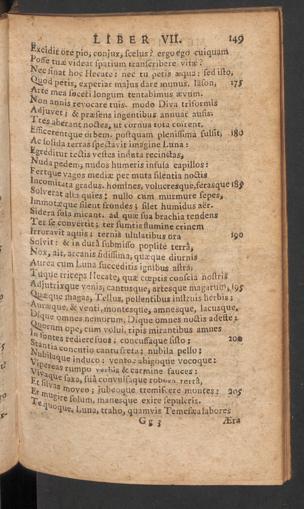 LIBER VII. 149
Excidit ore pio, conjux, scelus? ergo ego cuiquam
Posse tuæ videar spatium transcribere vitæ?
Nec sinat hoc Hecate: nec tu petis æqua; sed isto,
Quod petis, experiar majus dare munus, Iäson, 175
Arte mea soceri longum tentabimus ævum,
Non annis revocare tuis. modo Diva triformis
Adjuvet; & præsens ingentibus annuat ausis.
Tres aberant noctes, ut cornua tota coirent,
Efficerentque orbem. postquam plenissima fulsit, 180
Ac solida terras spectavit imagine Luna:
Egreditur tectis vestes induta recinctas,
Nuda pedem, nudos humeris infusa capillos:
Fertque vagos mediæ per muta silentia noctis
Incomitata gradus. homines, volucresque, ferasque 185
Solverat alta quies: nullo cum murmure sepes,
Immotæque silent frondes; silet humidus aër.
Sidera sola micant. ad quæ sua brachia tendens
Ter se convertit; ter sumtis flumine crinem
Irroravit aquis: ternis ululatibus ora 190
Solvit: & in dura submisso poplite terrâ,
Nox, ait, arcanis fidissima, quæque diurnis
Aurea cum Luna succeditis ignibus astra:
Tuque triceps Hecate, quæ cœptis conscia nostris
Adjutrixque venis, cantusque, artesque magarum, 195
Quæque magas, Tellus, pollentibus instruis herbis:
Auræque, & venti, montesque, amnesque, lacusque,
Dique omnes nemorum, Dique omnes noctis adeste:
Quorum ope, cum volui, ripis mirantibus amnes
In fontes rediere suos: concussaque sisto; 200
Stantia concutio cantu freta: nubila pello;
Nubilaque induco: ventos abigoque vocoque:
Vipereas rumpo verbis & carmine fauces:
Vivaque saxa, suâ convulsaque robora terrâ,
Et silvas moveo; jubeoque tremiscere montes: 205
Et mugire solum, manesque exire sepulcris.
Te quoque, Luna, traho, quamvis Temesæa labores
Gg 3 Æra